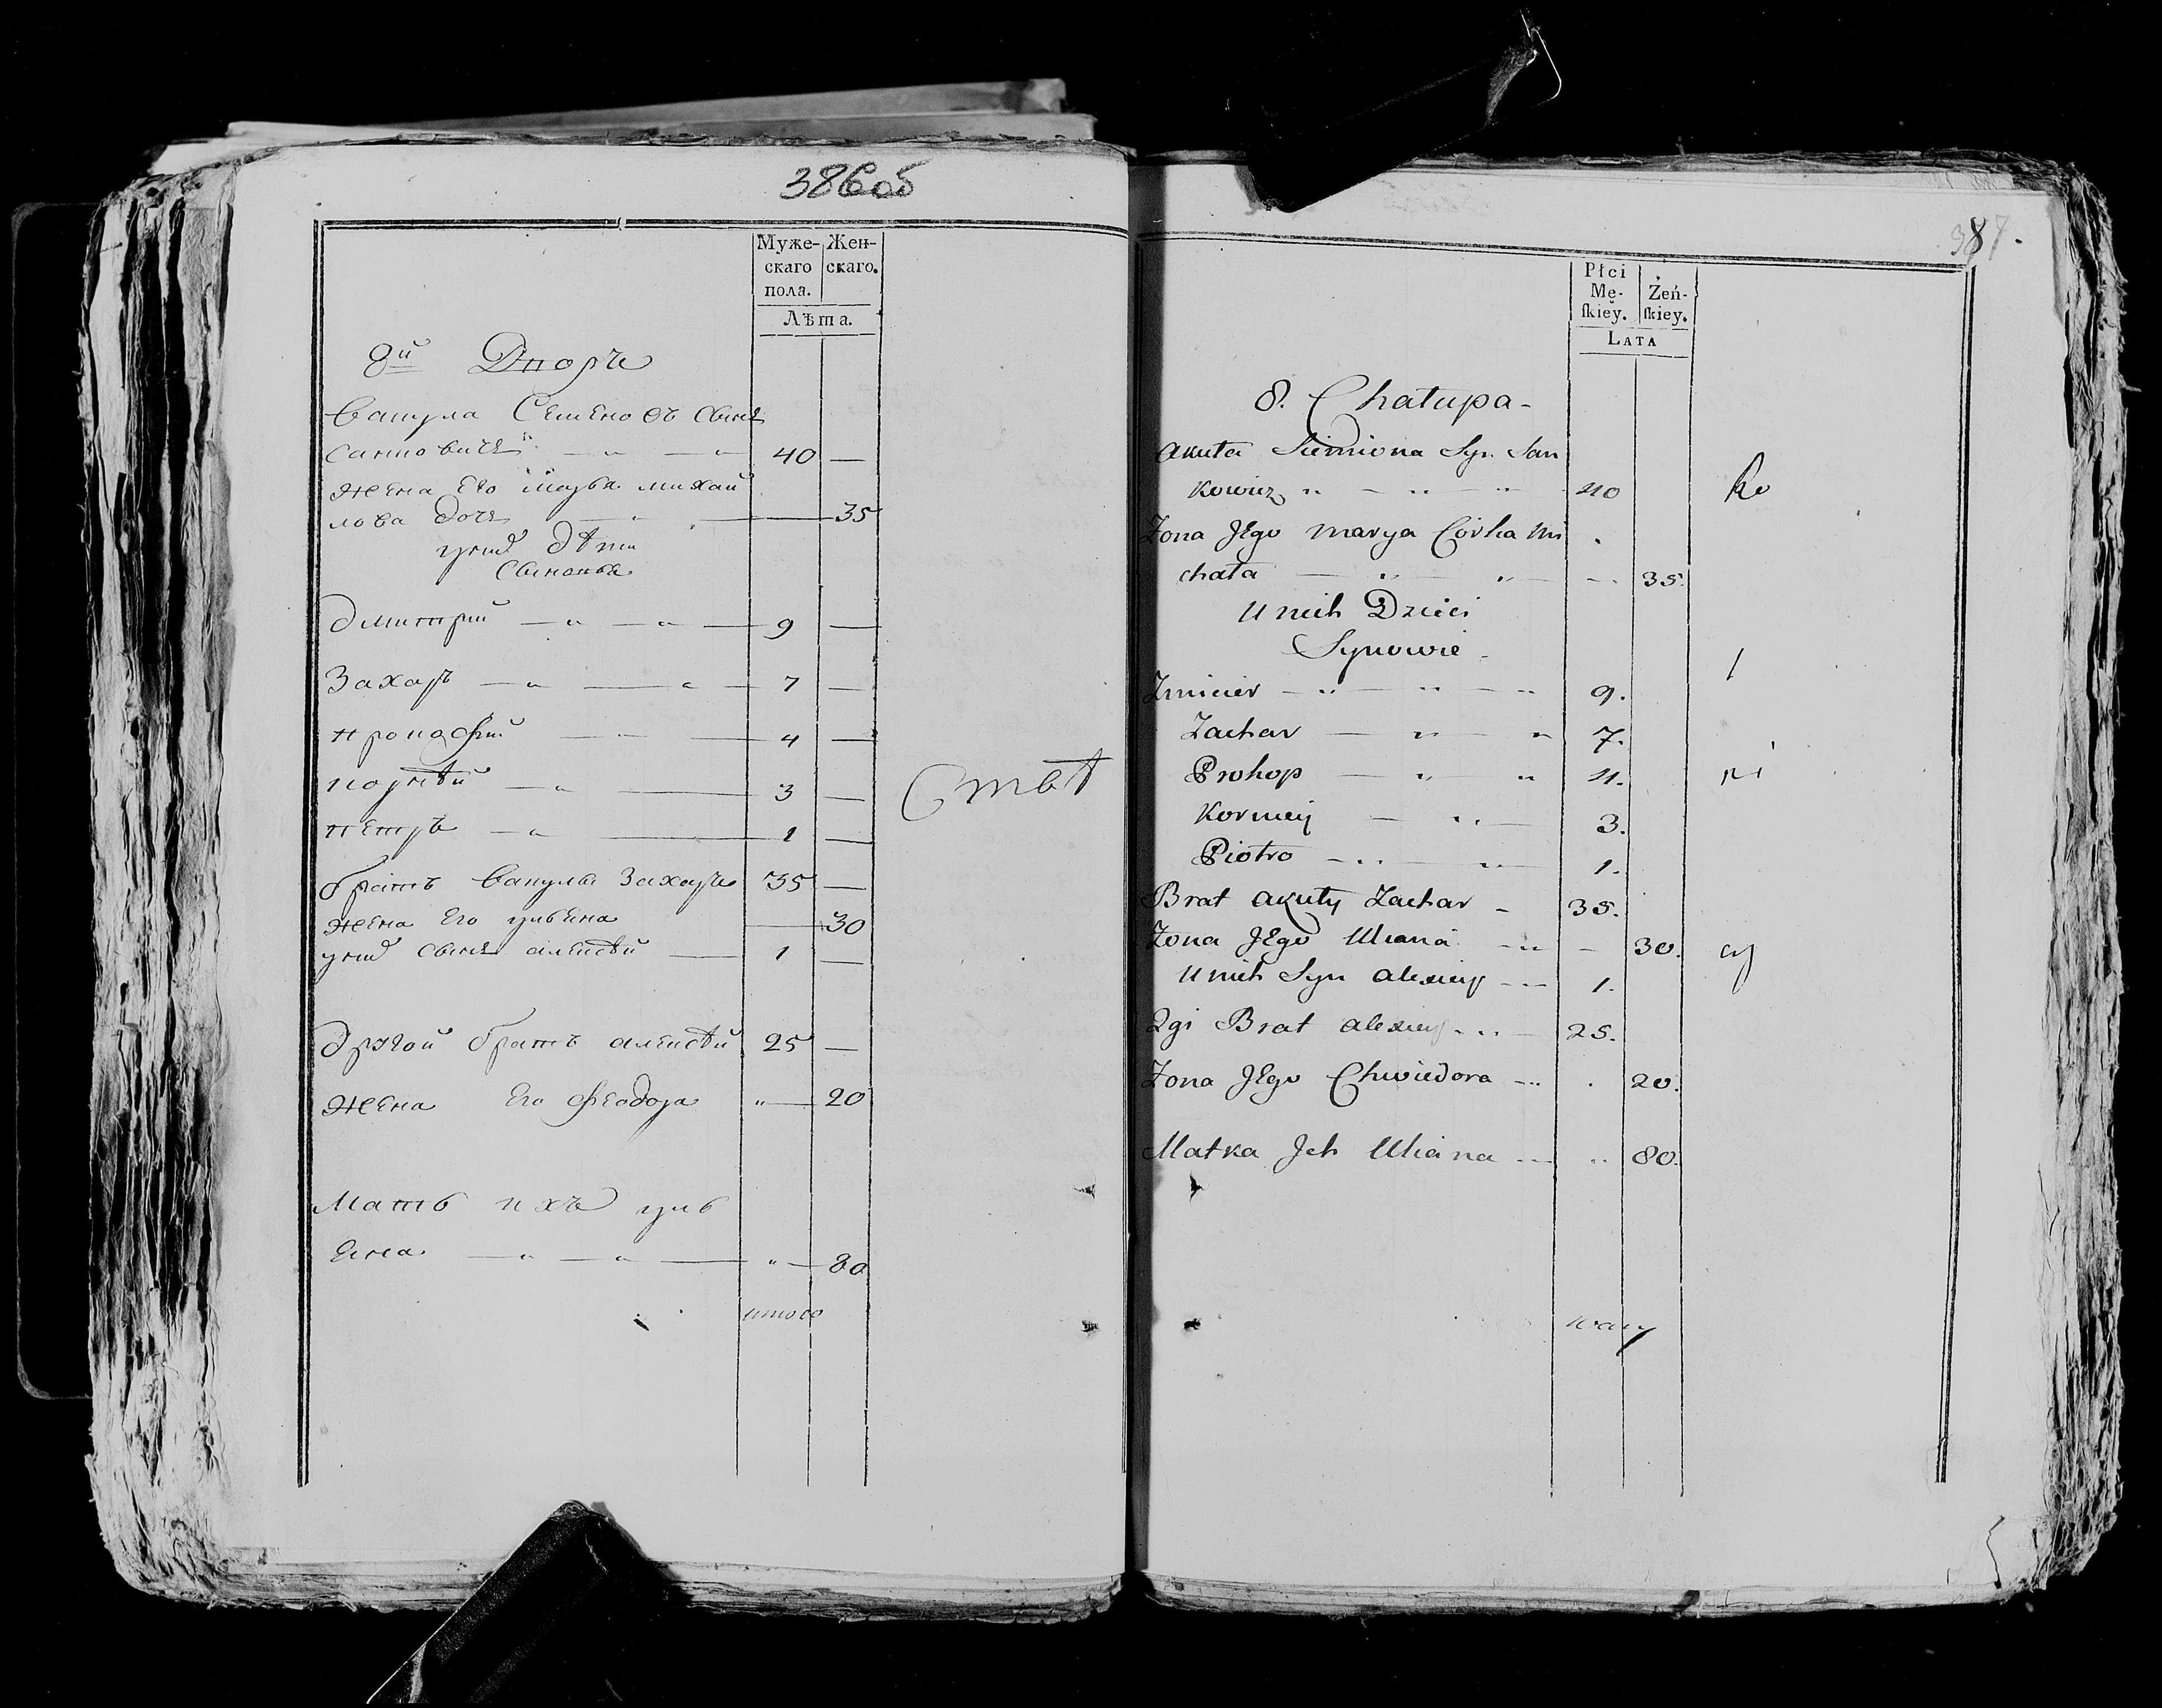 386об
Муже- Жен-
скаго скаго.
пола.
Лѣта.
8й Дворъ
Вакула Семеновъ сынъ
Санковичъ 40 —
жена его марья михай
лова дочь — 35
у них дѣти
сыновья
Дмитрий — „ — „ — 9 —
Захаръ — „ — „ — 7 —
прокофий — 4 —
корнѣй — „ — 3 —
петръ — „ — 1 —
братъ Вакулы Захаръ 35 —
жена его ульяна — 30
у них сынъ алексѣй — 1 —
другой братъ алексѣй 25 —
жена его феодора „ — 20
Мать ихъ уль
яна — „ — „ — „ — 80
итого
387.
Płci
Mę- Żeń-
skiey. skiey.
LATA
8. Chałupa -
Akuła Siemiona Syn San
kowicz „ — „ — „ 40
Żona Jego Marya Córka Mi
chała — „ — „ — 35.
U nich Dzieci
Synowie -
Zmicier — „ — „ — „ 9.
Zachar — „ „ 7.
Prokop — „ „ 4.
Korniey — „ — 3.
Piotro — „ „ 1.
Brat Akuły Zachar - 35.
Żona Jego Uliana — „ — 30.
U nich Syn Alexiey — 1.
2gi Brat Alexiey — „ — 25.
Żona Jego Chwiedora — . 20.
Matka Ich Uliana — „ 80.